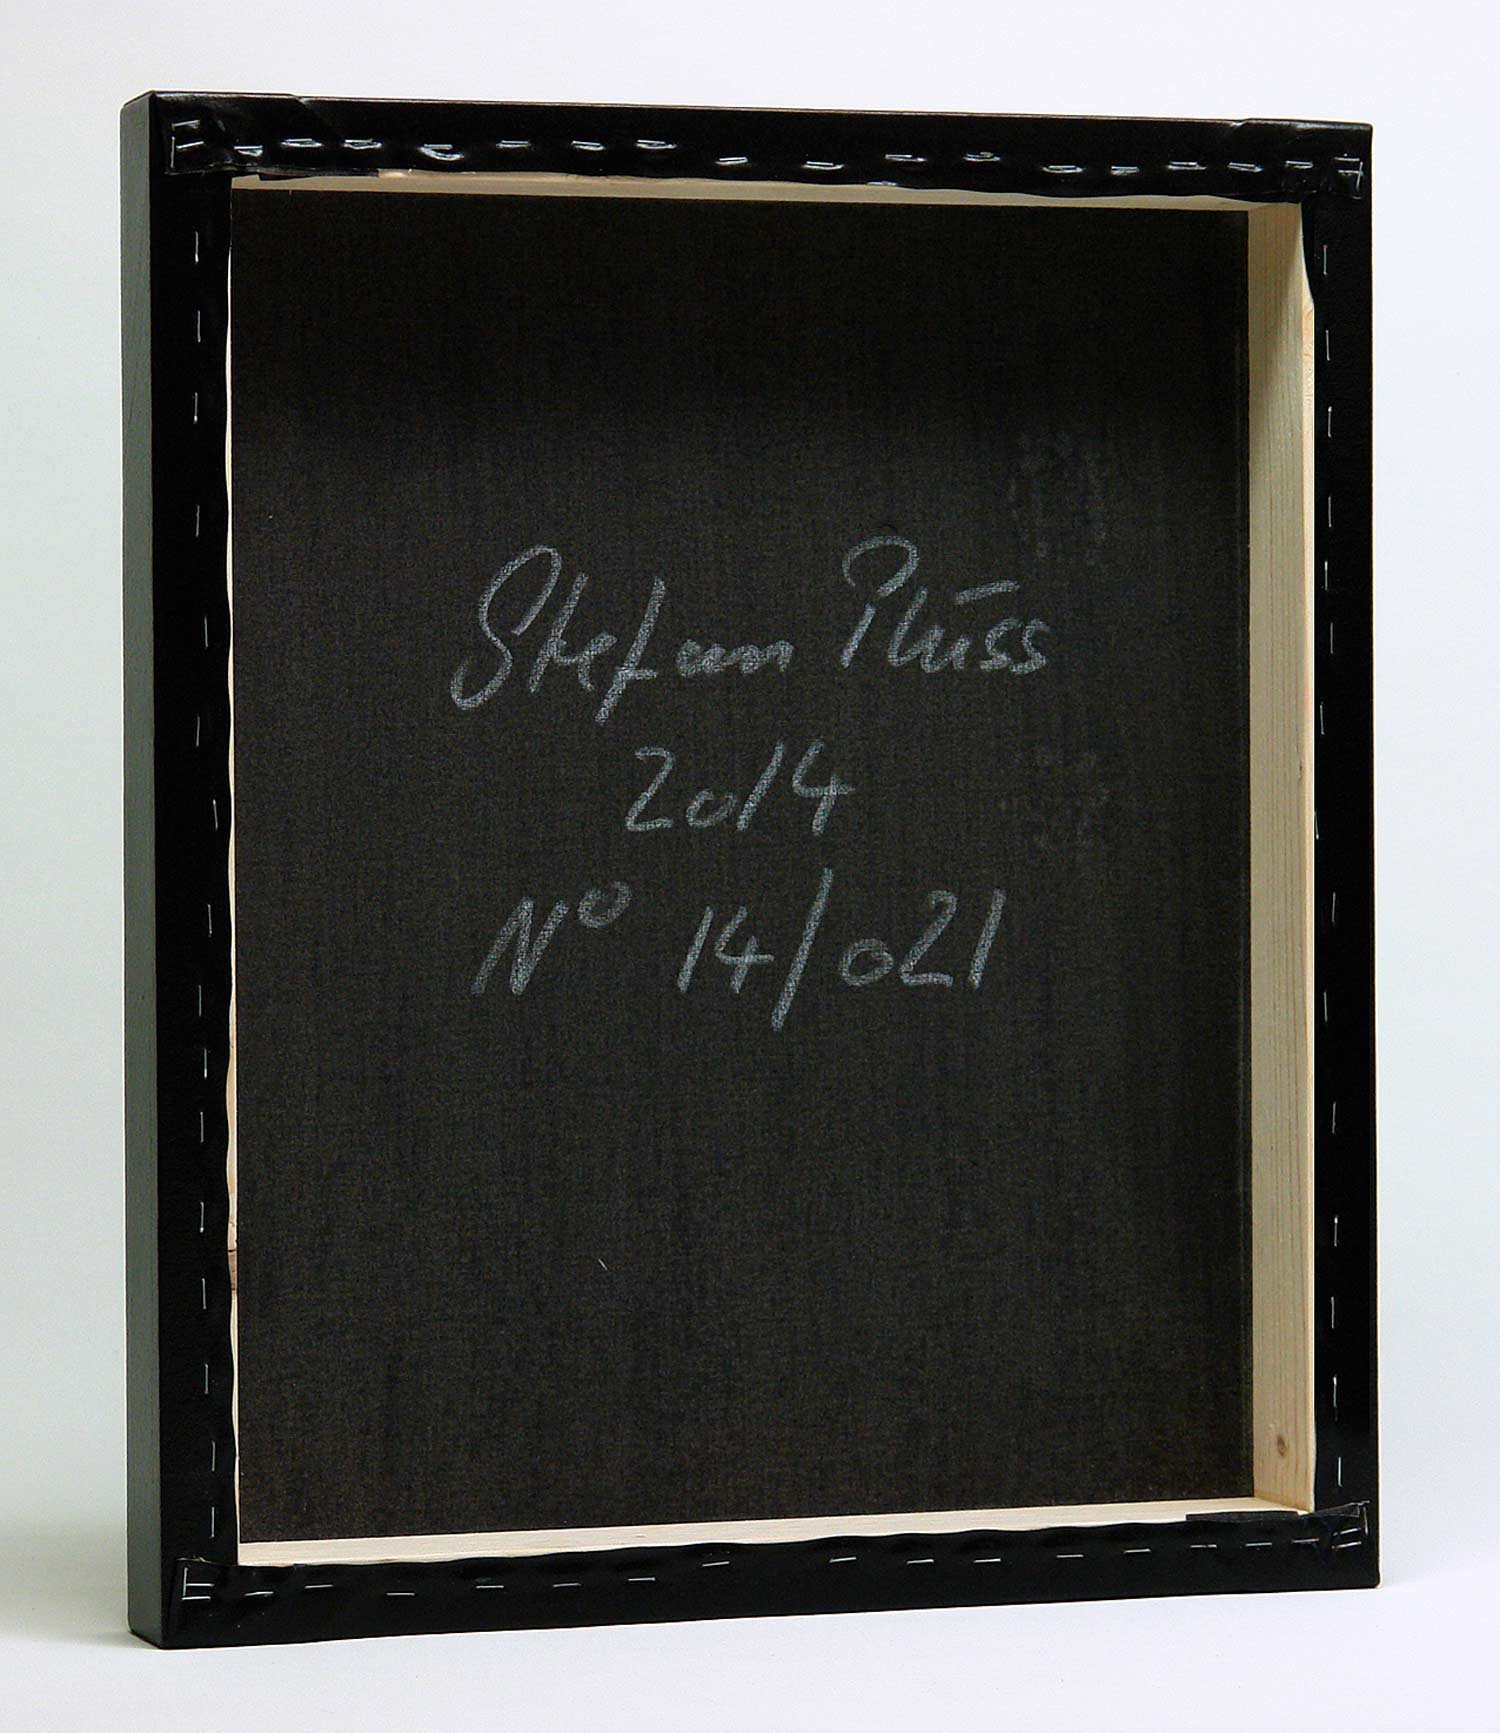 Stefan Plüss
2014
Nº 14/021